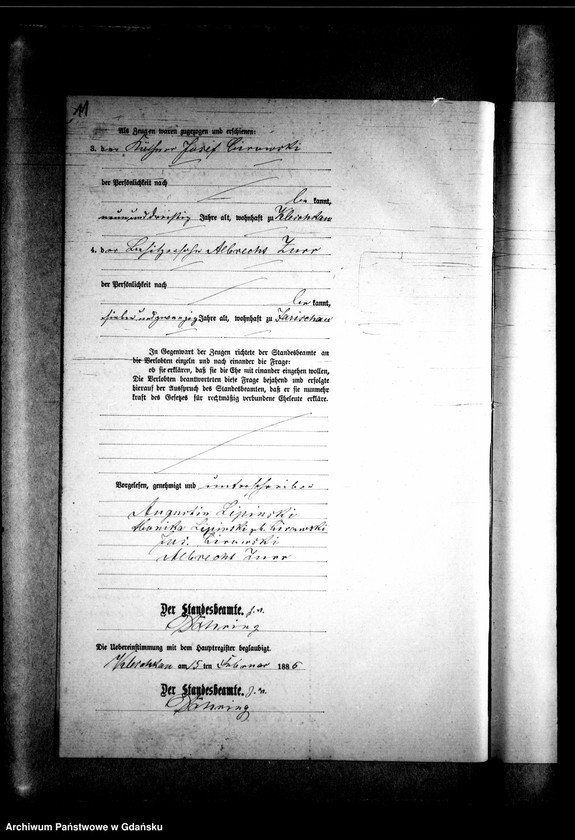 11
Als Zeugen waren zugezogen und erschienen:
3. der Käthner Josef Cirowski
der Persönlichkeit nach
be kannt,
neununddreißig Jahre alt, wohnhaft zu Kleschkau
4. der Besitzersohn Albrecht Zurr
der Persönlichkeit nach
be kannt,
siebenundzwanzig Jahre alt, wohnhaft zu Jarischau
In Gegenwart der Zeugen richtete der Standesbeamte an
die Verlobten einzeln und nach einander die Frage:
ob sie erklären, daß sie die Ehe mit einander eingehen wollen,
Die Verlobten beantworteten diese Frage bejahend und erfolgte
hierauf der Ausspruch des Standesbeamten, daß er sie nunmehr
kraft des Gesetzes für rechtmäßig verbundene Eheleute erkläre.
Vorgelesen, genehmigt und unterschrieben
Augustin Lipinski
Monika Lipinski geb. Cirowski
Jos. Cirowski
Albrecht Zurr
Der Standesbeamte.
Döhring
Die Uebereinstimmung mit dem Hauptregister beglaubigt.
Kleschkau am 15 ten Februar 1886
Der Standesbeamte.
Döhring
Archiwum Państwowe w Gdańsku